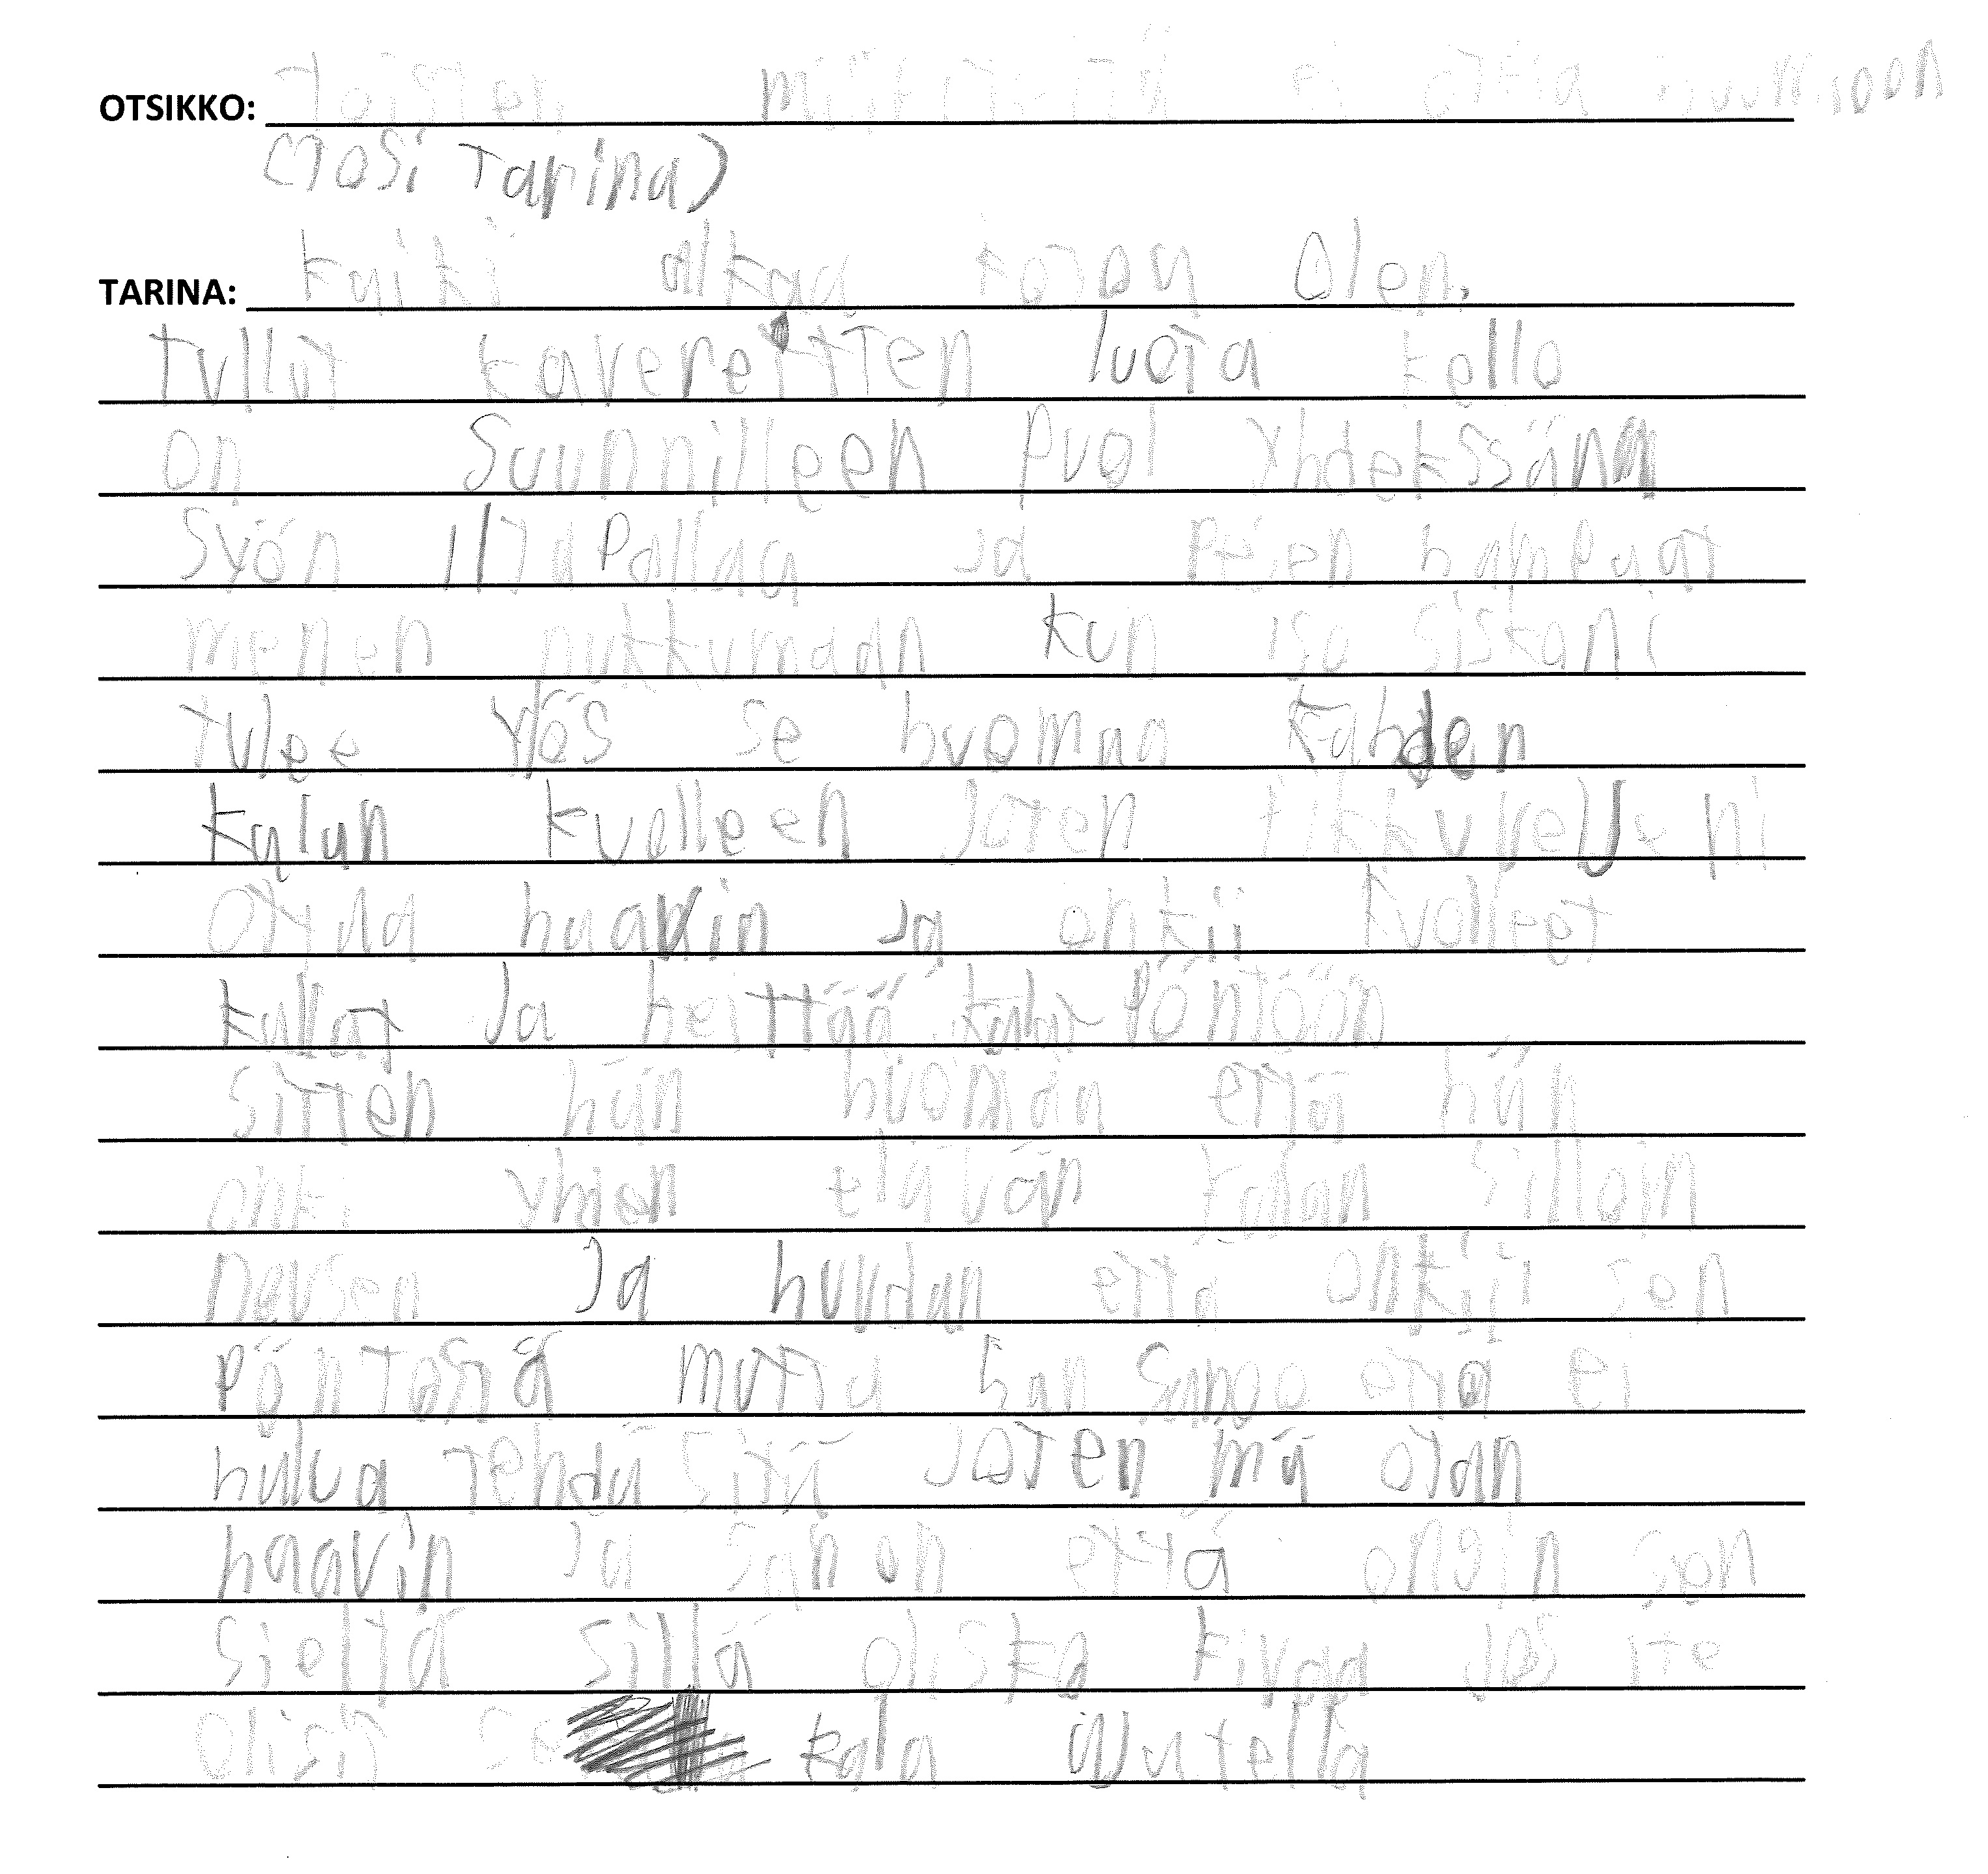 OTSIKKO: Toisten mielipitettä ei oteta huumioon
(Tosi Tarina)
TARINA: kaikki alkaa Olen
tullut kavereitten luota kello
on Suunnilleen puol yhdekssän
Syön iltapallaa ja Pesen hampaat
menen nukkumaan kun iso siskoni
tulee ylös se huomaa kahden
kalan kuolleen Joten pikkuveljeni
ottaa haavin ja onkii kuolleet
kallat Ja heittää Pönttöön
sitten hän huomaa että hän
onki yhen elävän kalan sillojn
nousen Ja huudan että onkii sen
pöntöstä mutta hän sanoo että ei
halua Tehdä sitä Joten mä otan
haavin Ja sanon että ongin sen
sieltä sillä oliska kivaa Jos ite
olisit se kala